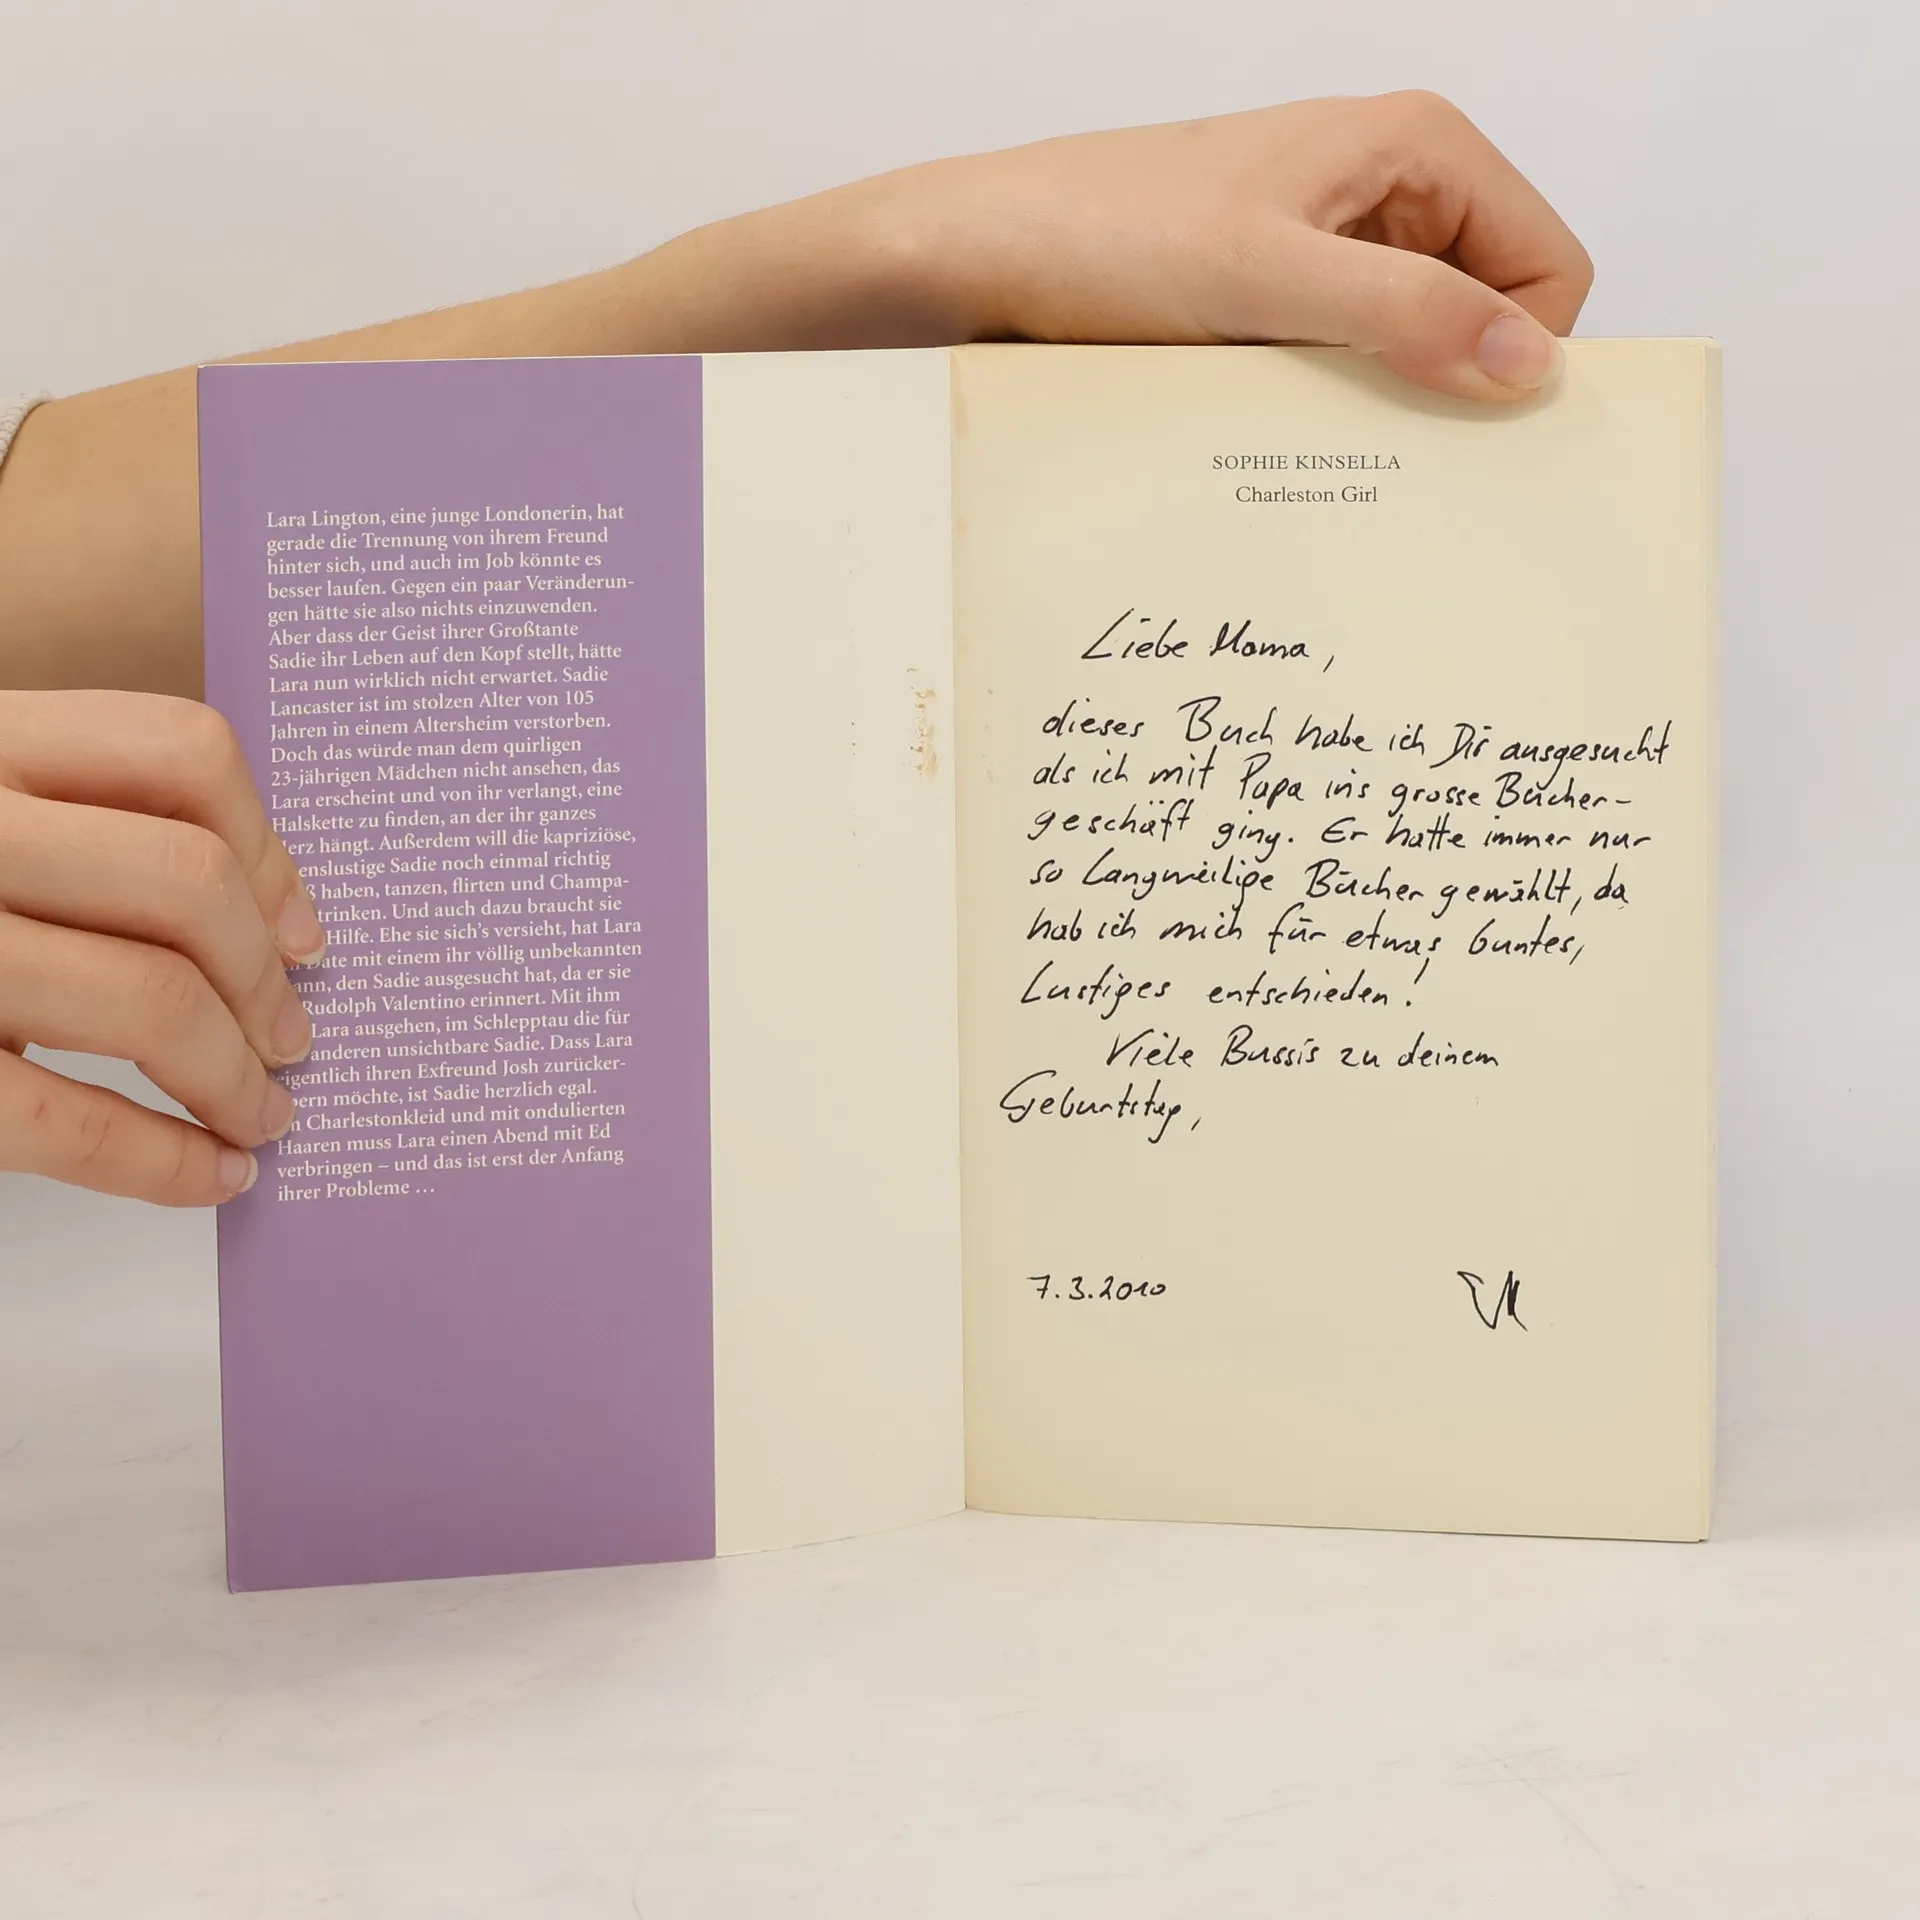 Lara Lington, eine junge Londonerin, hat
gerade die Trennung von ihrem Freund
hinter sich, und auch im Job könnte es
besser laufen. Gegen ein paar Veränderun-
gen hätte sie also nichts einzuwenden.
Aber dass der Geist ihrer Großtante
Sadie ihr Leben auf den Kopf stellt, hätte
Lara nun wirklich nicht erwartet. Sadie
Lancaster ist im stolzen Alter von 105
Jahren in einem Altersheim verstorben.
Doch das würde man dem quirligen
23-jährigen Mädchen nicht ansehen, das
Lara erscheint und von ihr verlangt, eine
Halskette zu finden, an der ihr ganzes
erz hängt. Außerdem will die kapriziöse,
enslustige Sadie noch einmal richtig
ß haben, tanzen, flirten und Champa-
trinken. Und auch dazu braucht sie
Hilfe. Ehe sie sich's versieht, hat Lara
Date mit einem ihr völlig unbekannten
ann, den Sadie ausgesucht hat, da er sie
Rudolph Valentino erinnert. Mit ihm
Lara ausgehen, im Schlepptau die für
anderen unsichtbare Sadie. Dass Lara
eigentlich ihren Exfreund Josh zurücker-
bern möchte, ist Sadie herzlich egal.
n Charlestonkleid und mit ondulierten
Haaren muss Lara einen Abend mit Ed
verbringen – und das ist erst der Anfang
ihrer Probleme ...
SOPHIE KINSELLA
Charleston Girl
Liebe Mama,
dieses Buch habe ich Dir ausgesucht
als ich mit Papa ins grosse Bücher-
geschäft ging. Er hatte immer nur
so Langweilige Bücher gewählt, da
hab ich mich für etwas buntes,
Lustiges entschieden!
Viele Bussis zu deinem
Geburtstag,
7.3.2010